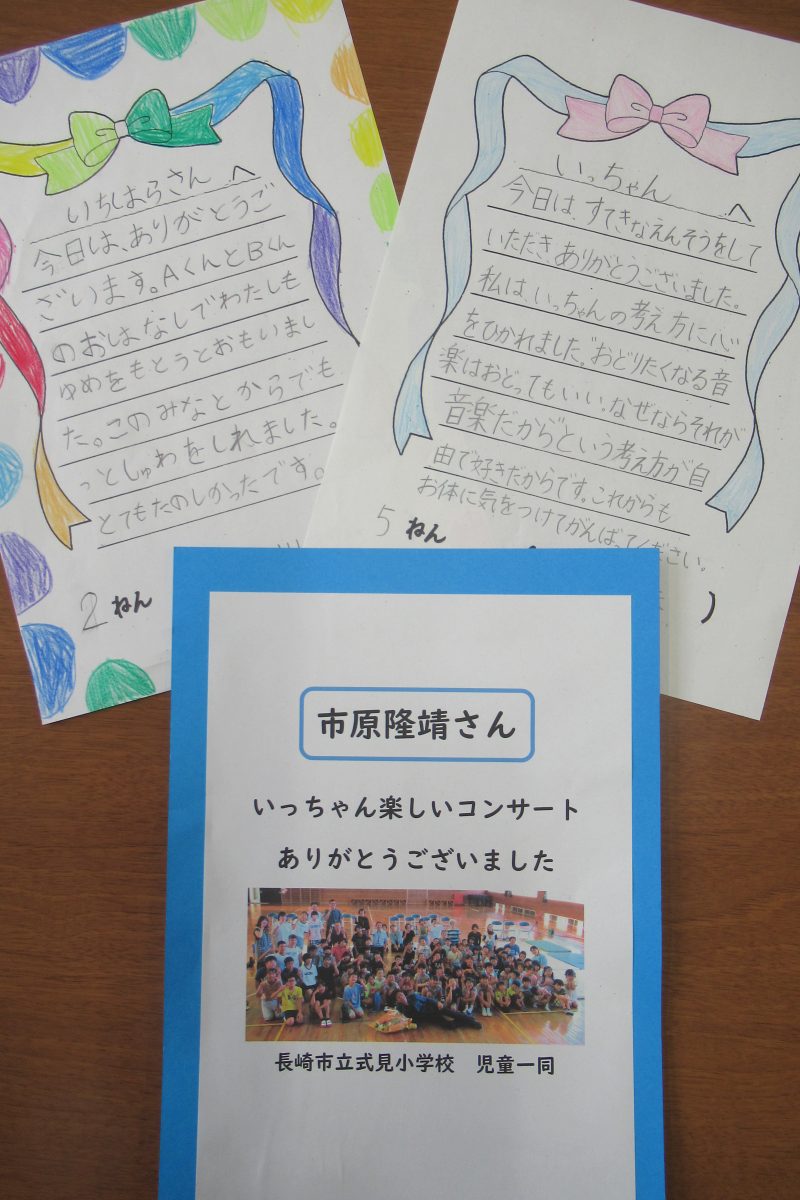 いちはらさん へ
今日は、ありがとうご
ざいます。AくんとBくん
のおはなしでわたしも
ゆめをもとうとおもいまし
た。このみなとからでも
っとしゅわをしれました。
とてもたのしかったです。
2 ねん
いっちゃん へ
今日は、すてきなえんそうをして
いただき、ありがとうございました。
私は、いっちゃんの考え方に心
をひかれました。"おどりたくなる音
楽はおどってもいい。なぜならそれが
音楽だから"という考え方が自
由で好きだからです。これからも
お体に気をつけてがんばってください。
5 ねん
)
市原隆靖さん
いっちゃん楽しいコンサート
ありがとうございました
長崎市立式見小学校 児童一同